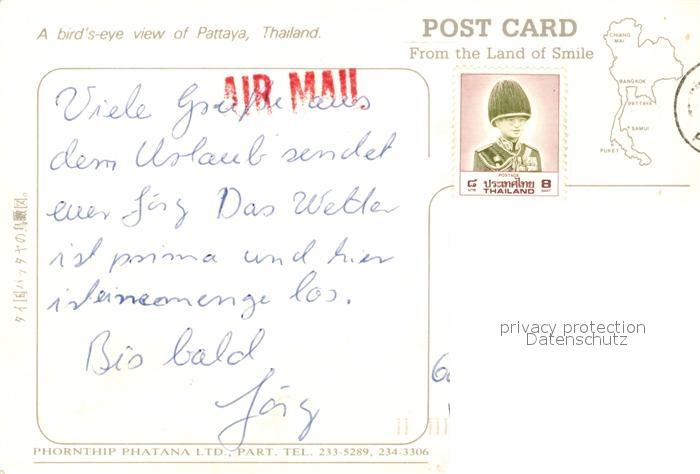 A bird's-eye view of Pattaya, Thailand.
POST CARD
From the Land of Smile
CHIANG MAI
BANGKOK
PATTAYA
SAMUI
PUKET
AIR MAIL
Viele Grüße aus
dem Urlaub sendet
euer Jörg Das Wetter
ist prima und hier
ist eine menge los.
Bis bald
Jörg
POSTAGE
๘ ประเทศไทย 8
บาท THAILAND BAHT
タイ国パッタヤの鳥瞰図。
privacy protection
Datenschutz
PHORNTHIP PHATANA LTD., PART. TEL. 233-5289, 234-3306